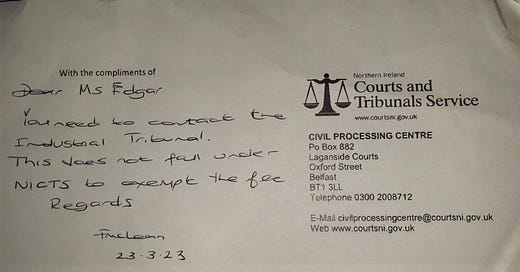 With the compliments of
Dear Ms Edgar
You need to contact the
Industrial Tribunal.
This does not fall under
NICTS to exempt the fee
Regards
23.3.23
Northern Ireland
Courts and
Tribunals Service
www.courtsni.gov.uk
CIVIL PROCESSING CENTRE
Po Box 882
Laganside Courts
Oxford Street
Belfast
BT1 3LL
Telephone 0300 2008712
E-Mail civilprocessingcentre@courtsni.gov.uk
Web www.courtsni.gov.uk